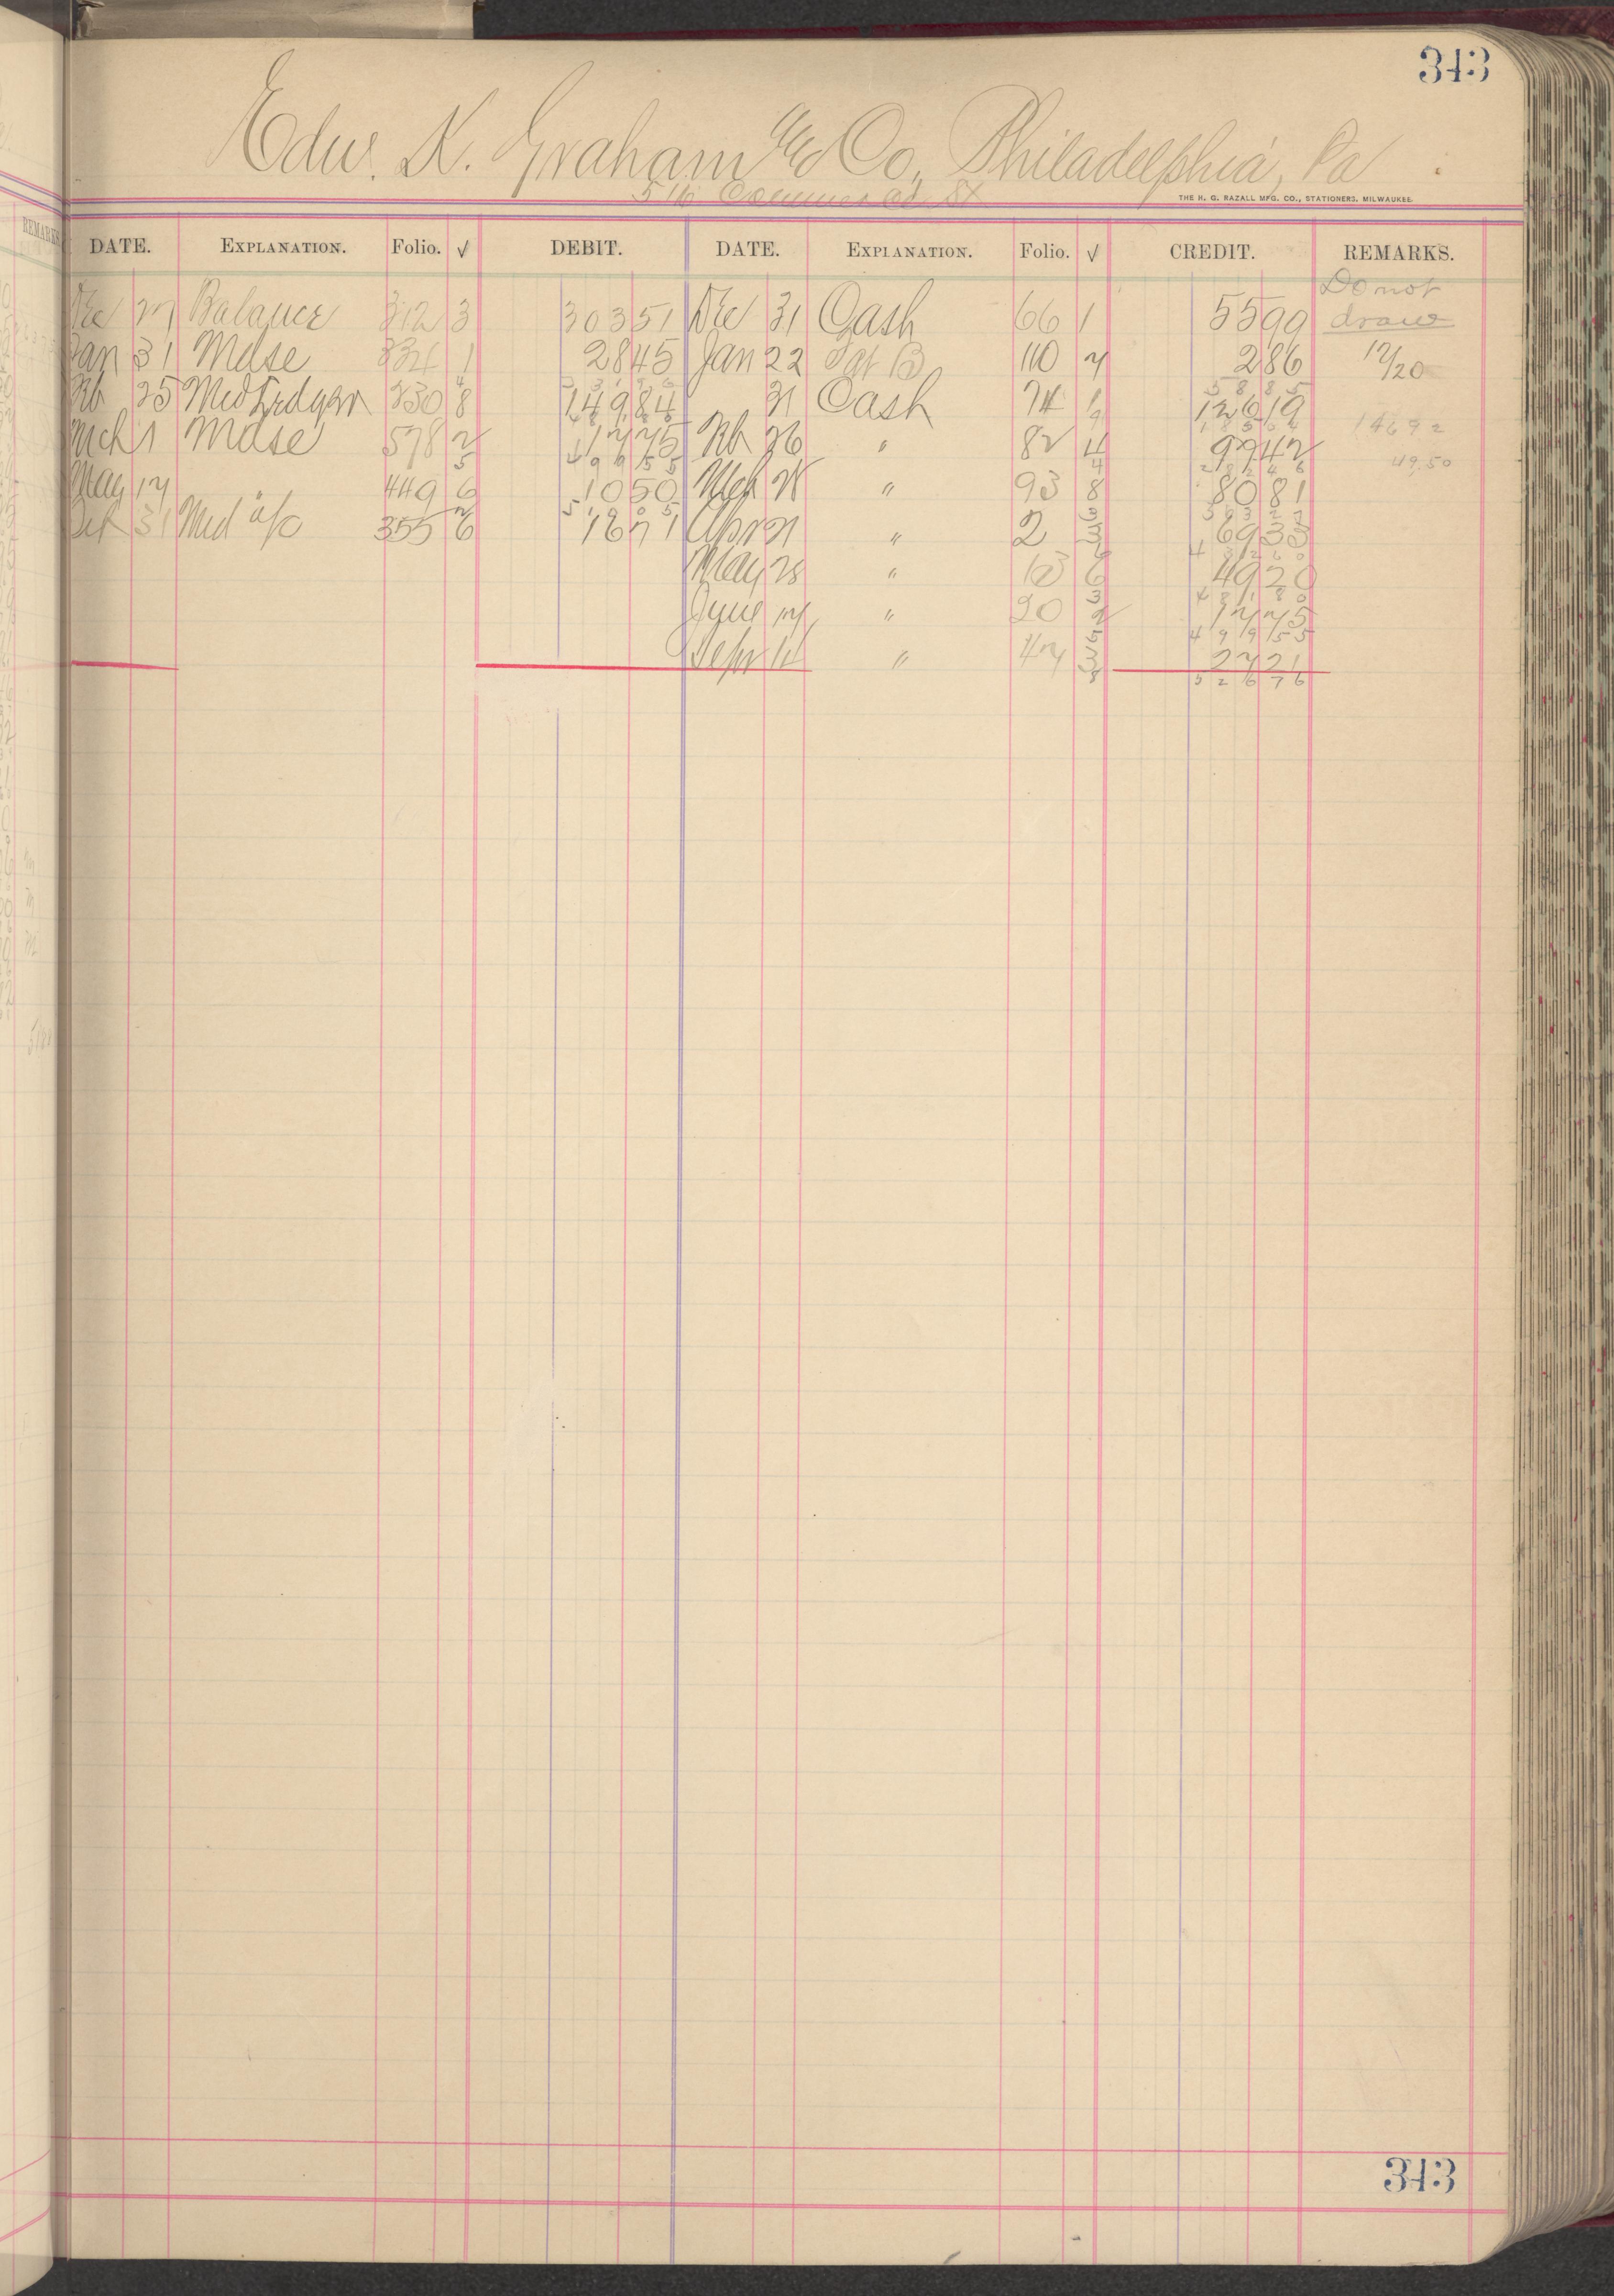 343
Edw. K. Graham & Co, Philadelphia, Pa
516 Commerce St
THE H. G. RAZALL MFG. CO., STATIONERS, MILWAUKEE.
REMARKS
DATE. EXPLANATION. Folio. √ DEBIT. DATE. EXPLANATION. Folio. √ CREDIT. REMARKS.
Do not
Dec 27 Balance 312 3 303 51 Dec 31 Cash 66 1 55 99 draw
Jan 31 Mdse 324 1 28 45 Jan 22 110 7 2 86 12/20
58 85
Feb 25 Med Ledger 330 8 149 84 31 Cash 74 1 126 19
185 04 146 92
Mch 1 Mdse 578 2 17 75 Feb 26 " 82 4 99 42
499 55 284 46 49.50
May 17 449 6 10 50 Mch 28 " 93 8 80 81
510 05
Oct 31 Med a/c 355 6 16 71 Apr 21 " 2 69 33
May 28 " 13 6 49 20
481 80
June 17 " 20 2 17 75
499 55
Sepr 14 " 47 27 21
526 76
343